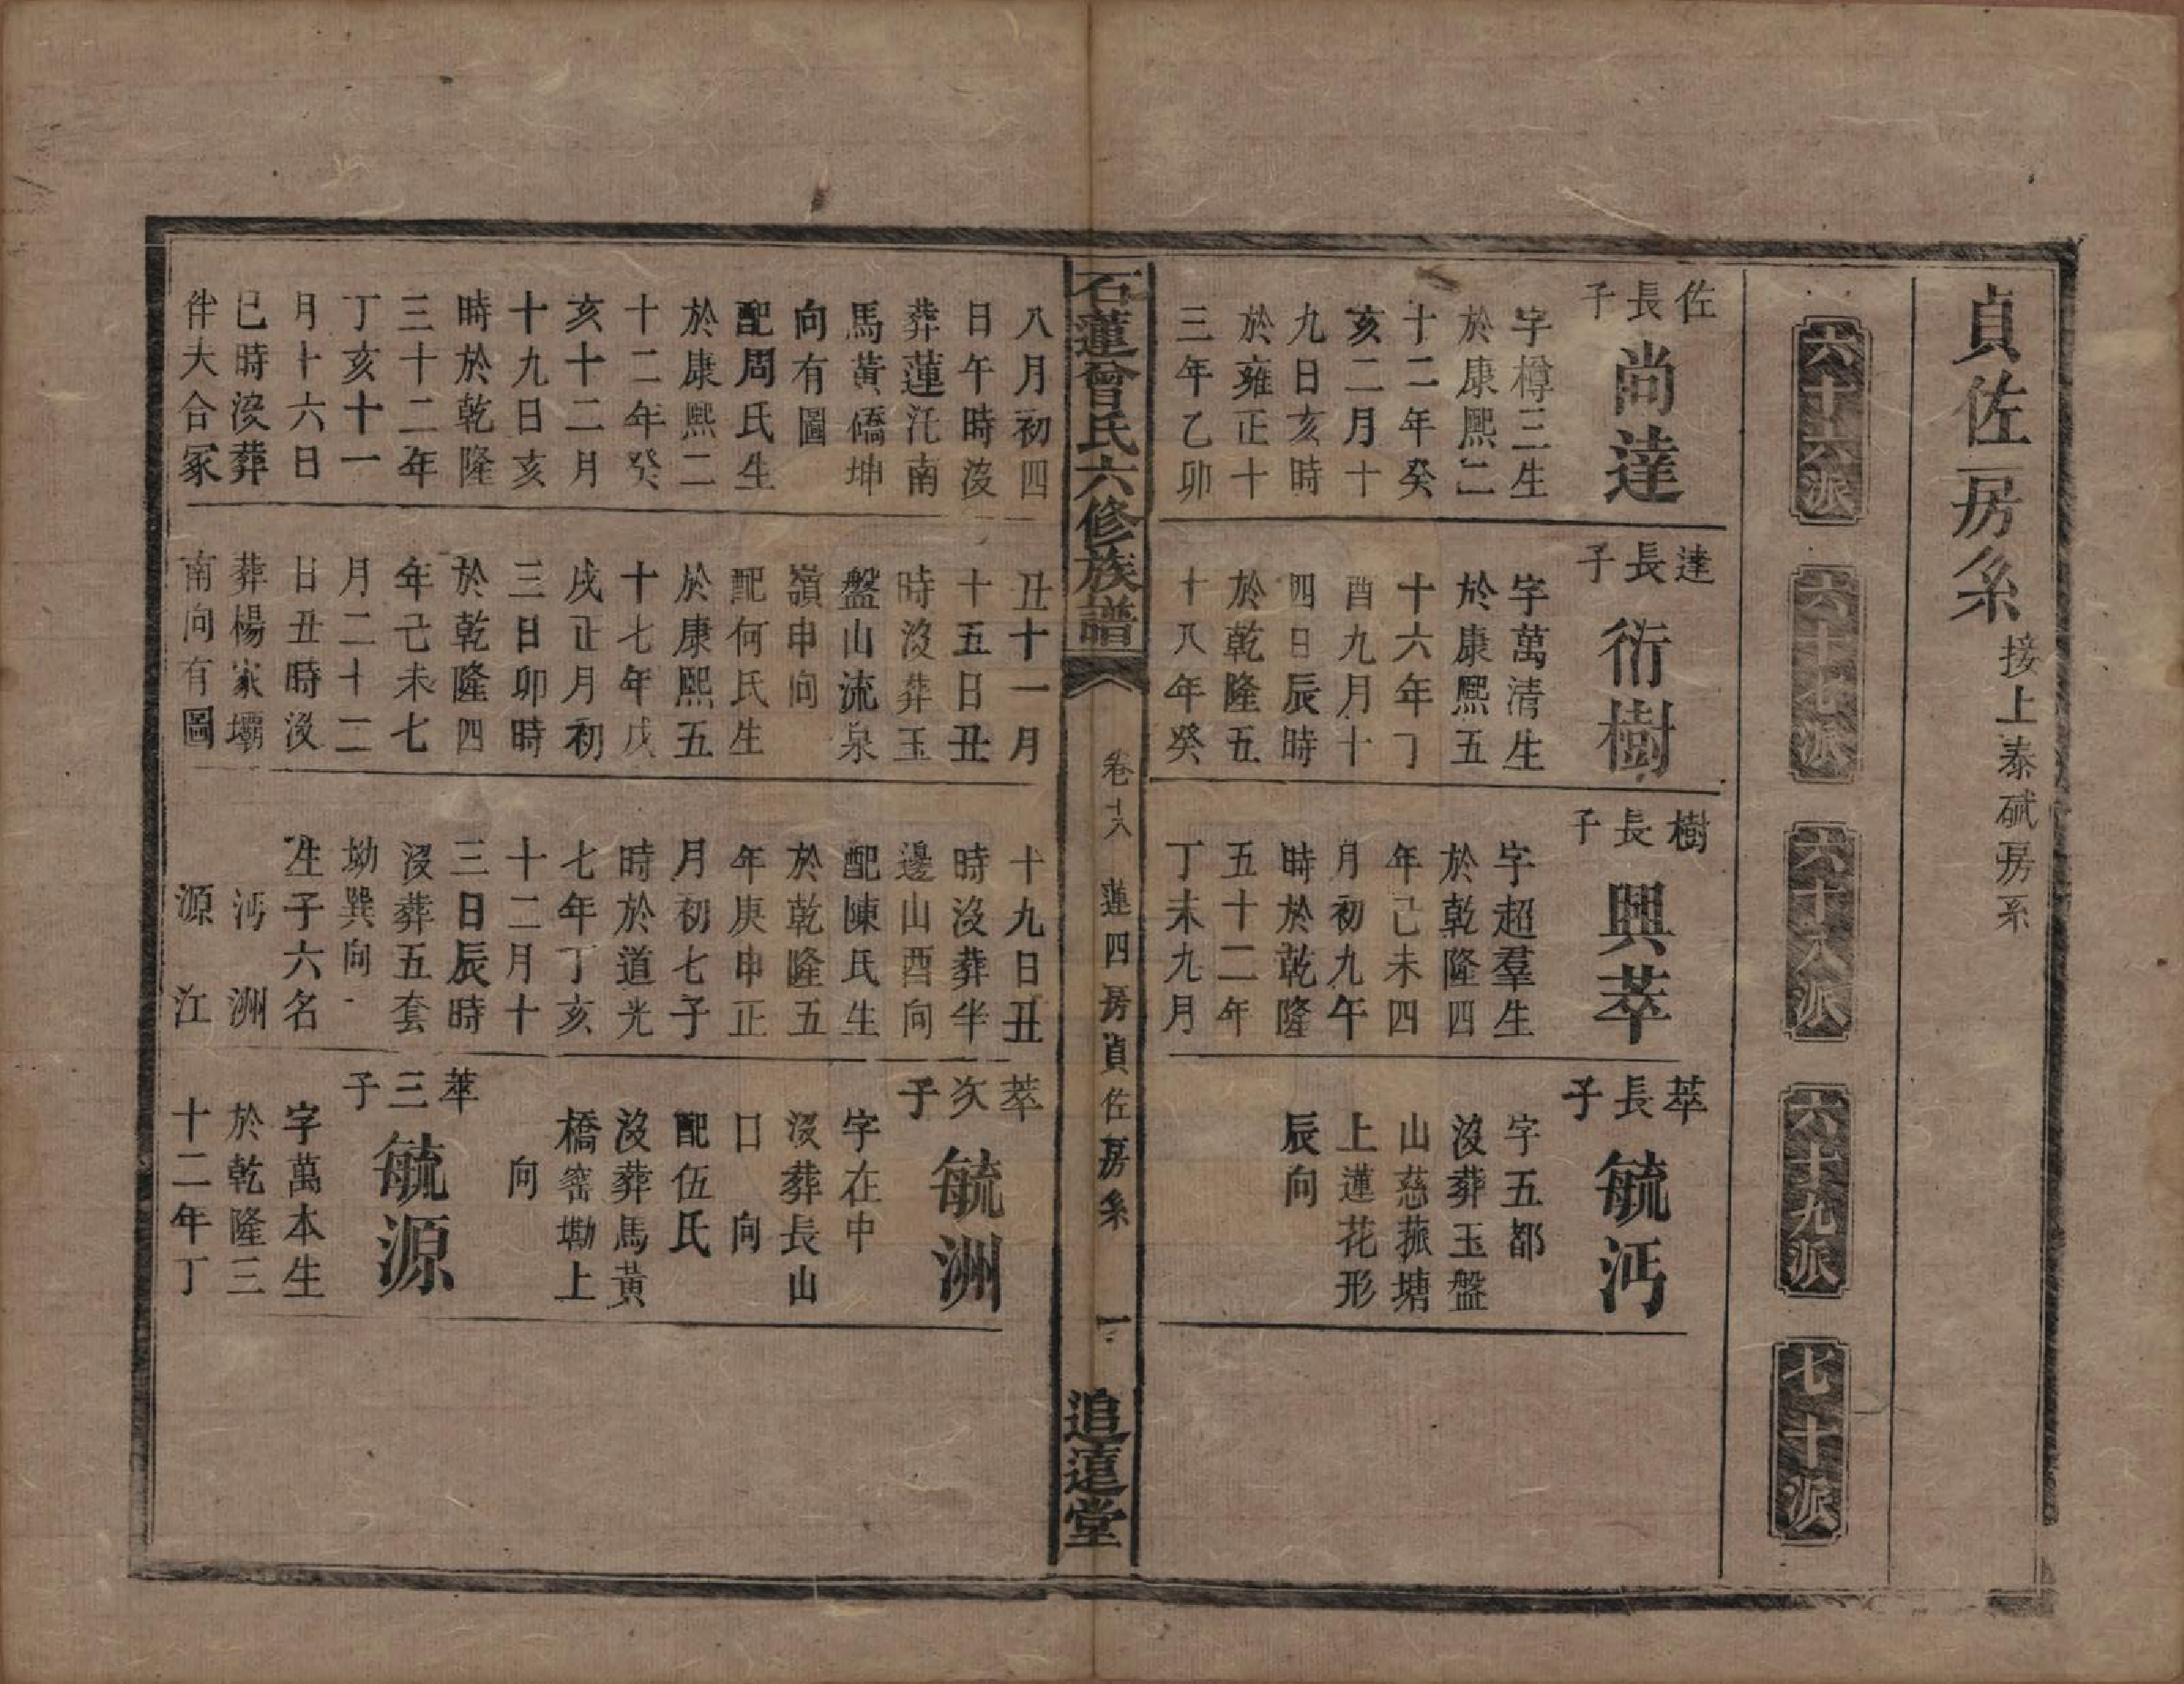 貞佐房系 接上泰碱房系
六十六派
六十七派
六十八派
六十九派
七十派
佐長子
尚達
字樽三生
於康熙二
十二年癸
亥二月十
九日亥時
於雍正十
三年乙卯
達長子
衍樹
字萬清生
於康熙五
十六年丁
酉九月十
四日辰時
於乾隆五
十八年癸
樹長子
興萃
字超羣生
於乾隆四
年己未四
月初九午
時於乾隆
五十二年
丁未九月
萃長子
毓沔
字五都
沒葬玉盤
山慈菰塘
上蓮花形
辰向
石蓮曾氏六修族譜
卷十六 蓮四房貞佐房系 一
追遠堂
八月初四
日午時沒
葬蓮汑南
馬黃僑坤
向有圖
配周氏生
於康熙二
十二年癸
亥十二月
十九日亥
時於乾隆
三十二年
丁亥十一
月十六日
巳時沒葬
伴大合冢
丑十一月
十五日丑
時沒葬玉
盤山流泉
嶺申向
配何氏生
於康熙五
十七年戊
戌正月初
三日卯時
於乾隆四
年己未七
月二十二
日丑時沒
葬楊家壩
南向有圖
十九日丑
時沒葬半
邊山酉向
配陳氏生
於乾隆五
年庚申正
月初七子
時於道光
七年丁亥
十二月十
三日辰時
沒葬五套
坳巽向
生子六名
沔洲
源江
萃次子
毓洲
字在中
沒葬長山
口向
配伍氏
沒葬馬黃
橋窰墈上
向
萃三子
毓源
字萬本生
於乾隆三
十二年丁